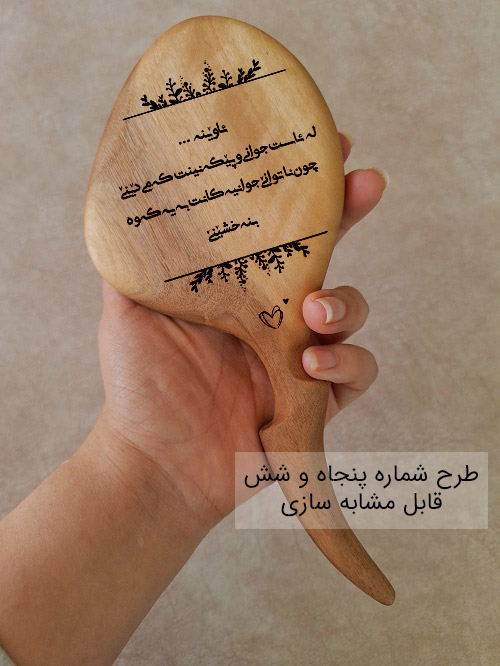 ئاوێنە ...
لە ئاست جوانی و پێکەنینت کەی دێنێ
چون ناتوانێ جوانیەکانت بە یەکەوە
بنەخشێنێ
طرح شماره پنجاه و شش
قابل مشابه سازی